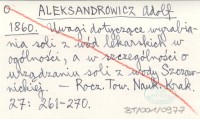 O ALEKSANDROWICZ Adolf
1860. Uwagi dotyczące wyrabia-
nia soli z wód lekarskich w
ogólności, a w szczególności o
urządzaniu soli z wody Szczaw-
nickiej. — Rocz. Tow. Nauk. Krak.
27: 261-270.